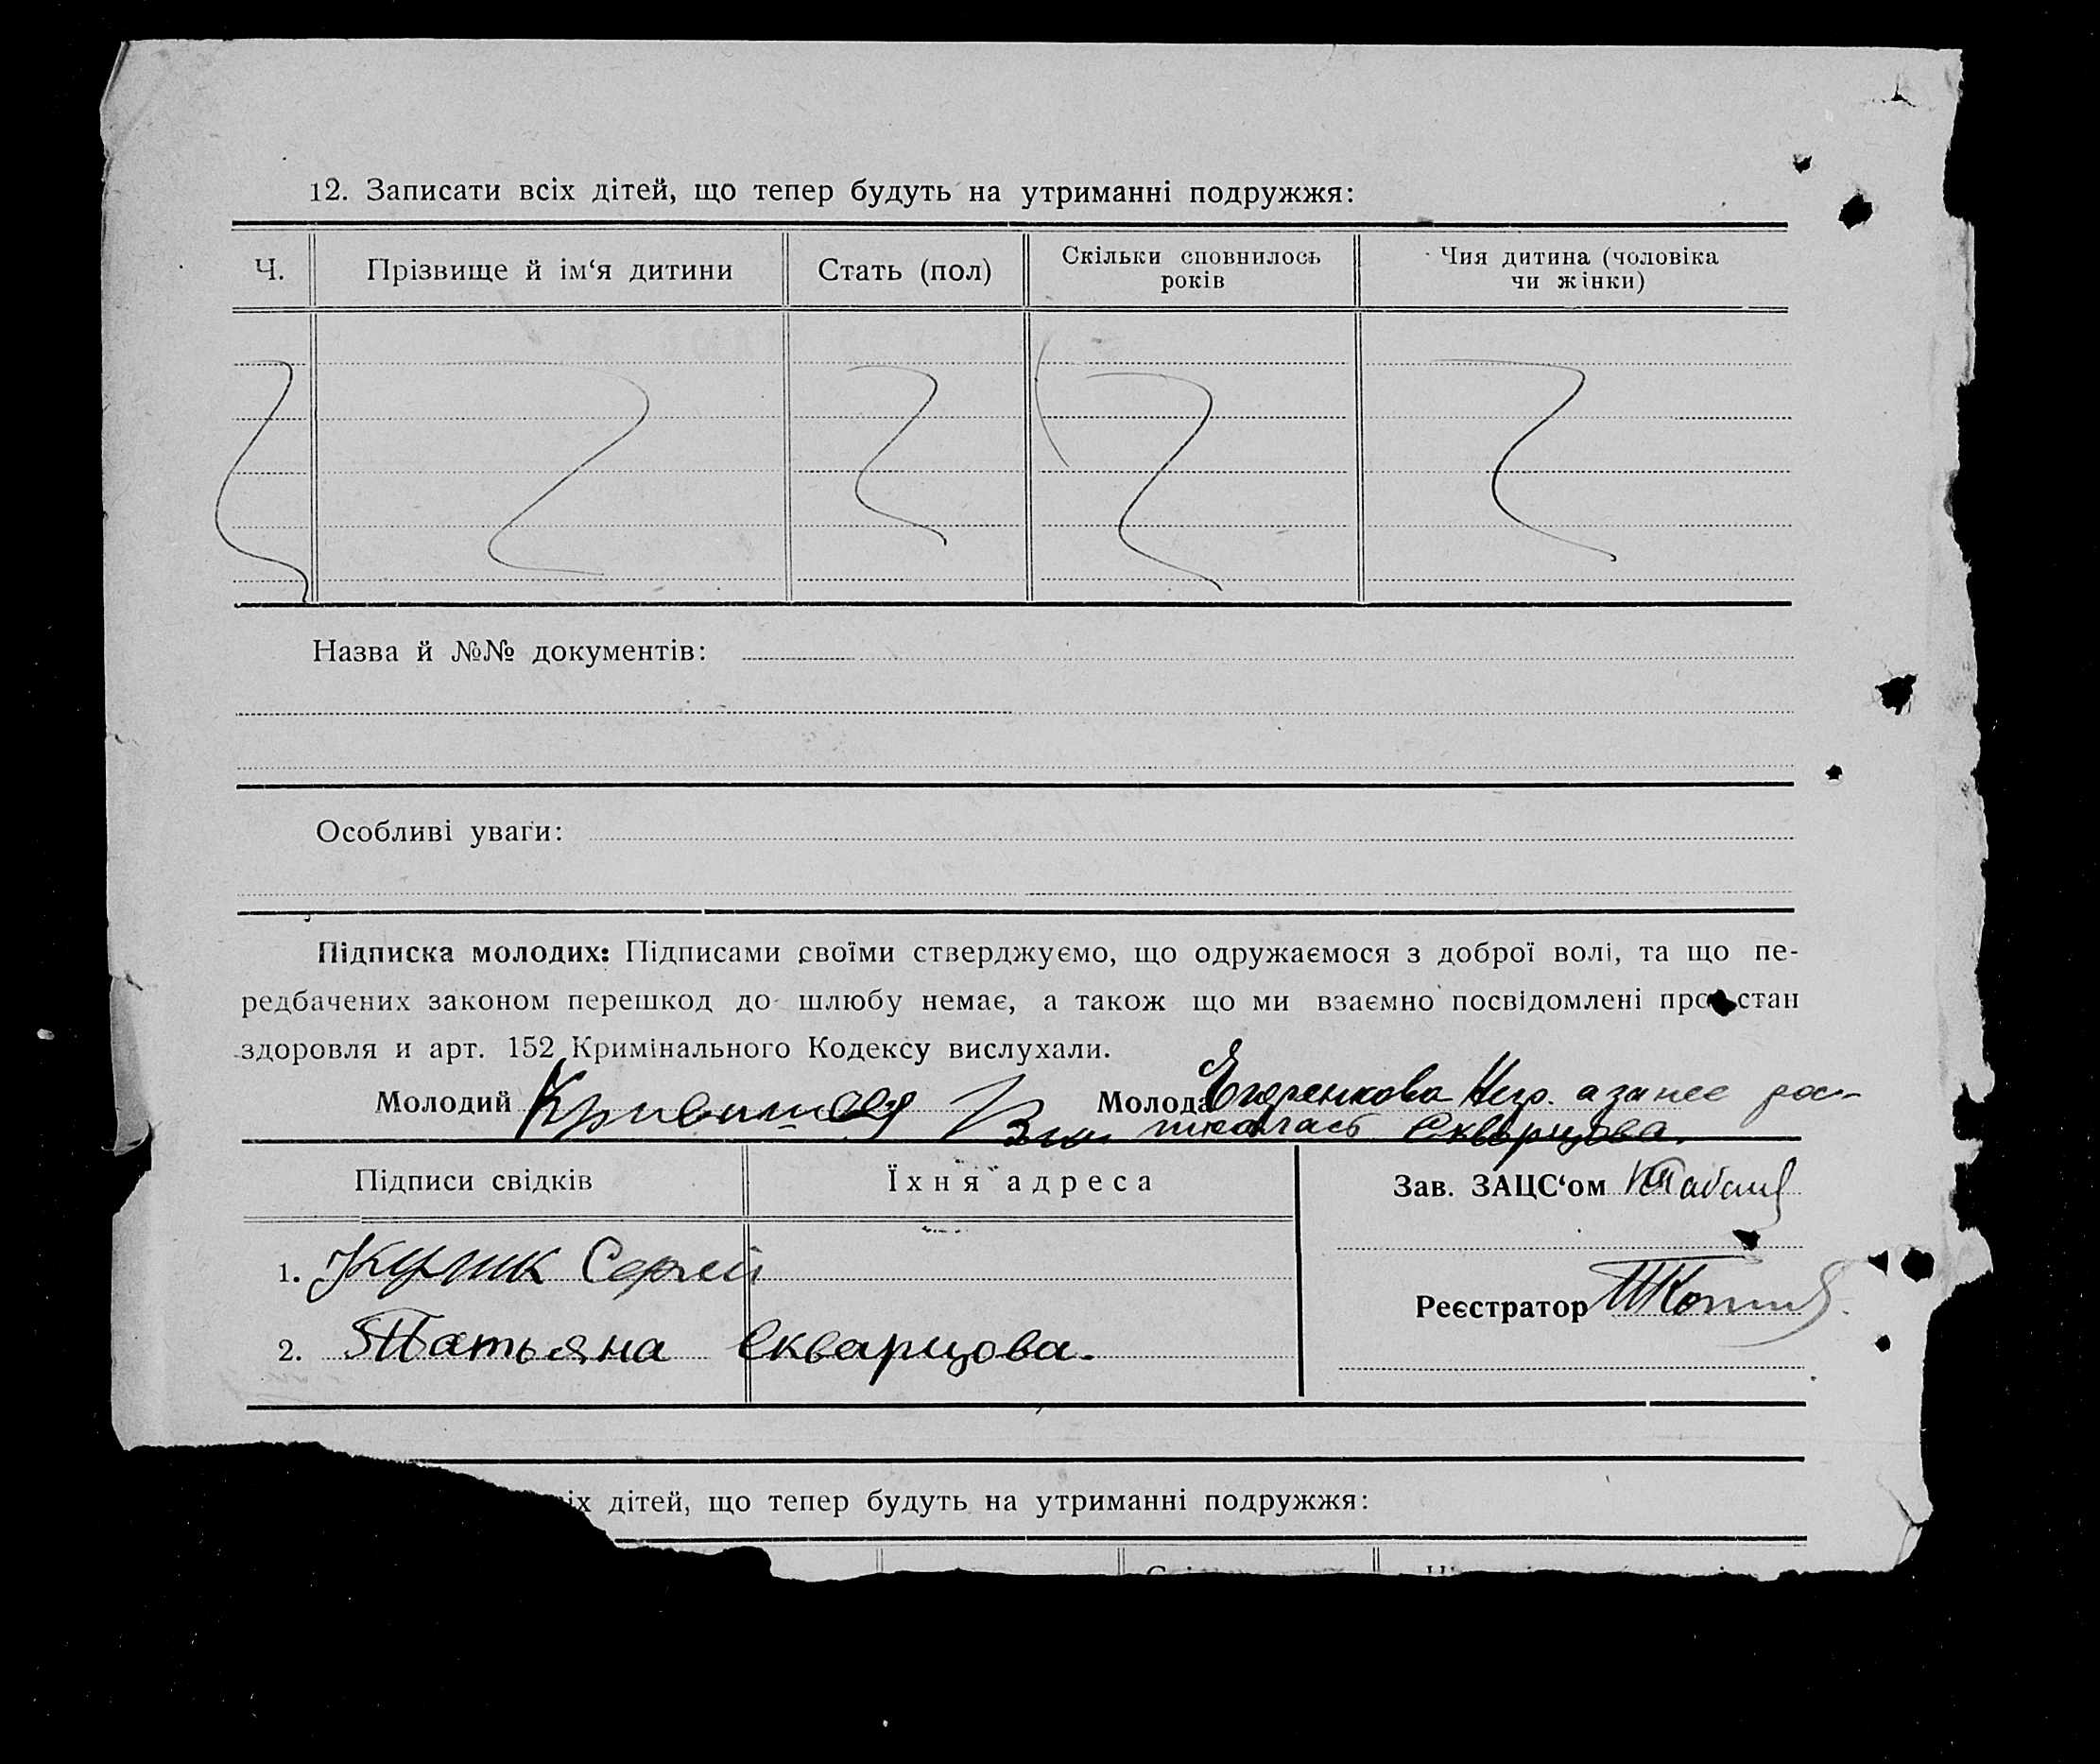 12. Записати всіх дітей, що тепер будуть на утриманні подружжя:
Ч.
Прізвище й ім‘я дитини
Стать (пол)
Скільки сповнилось
років
Чия дитина (чоловіка
чи жінки)
Назва й №№ документів:
Особливі уваги:
Підписка молодих: Підписами своїми стверджуємо, що одружаємося з доброї волі, та що пе-
редбачених законом перешкод до шлюбу немає, а також що ми взаємно посвідомлені про стан
здоровля и арт. 152 Кримінального Кодексу вислухали.
Молодий
Молода Егоренкова негр. а за нее рос-
писалась Скварцова.
Підписи свідків
Їхня адреса
Зав. ЗАЦС‘ом
1. Сергей
2. Татьяна Скварцова.
Реєстратор
іх дітей, що тепер будуть на утриманні подружжя: